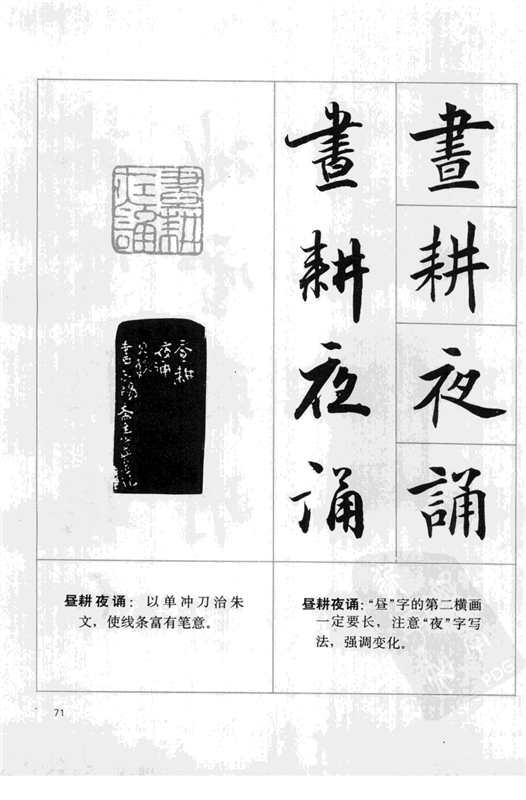 晝
耕
夜
誦
晝
耕
夜
诵
晝耕夜誦
昼耕夜诵：以单冲刀治朱
文，使线条富有笔意。
昼耕夜诵：“昼”字的第二横画
一定要长，注意“夜”字写
法，强调变化。
71
PDG